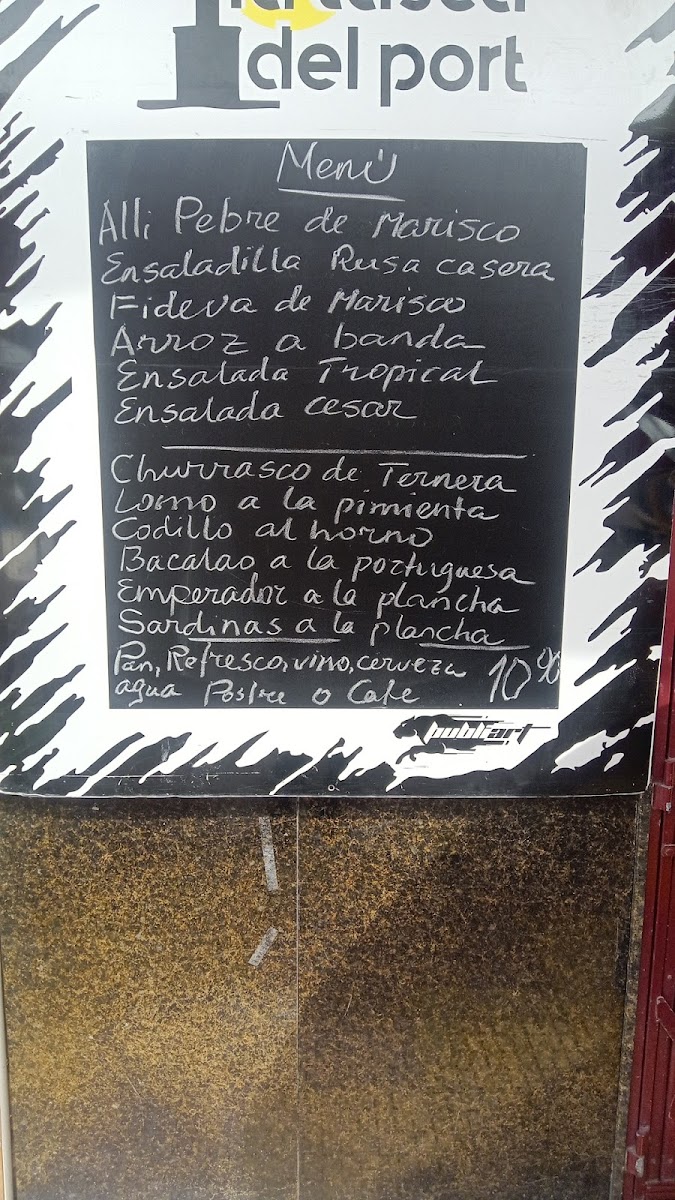 del port
Menú
Alli Pebre de Marisco
Ensaladilla Rusa casera
Fideva de Marisco
Arroz a banda
Ensalada Tropical
Ensalada cesar
Churrasco de Ternera
Lomo a la pimienta
Codillo al horno
Bacalao a la portuguesa
Emperador a la plancha
Sardinas a la plancha
Pan, Refresco, vino, cerveza 10
agua Postre o Cafe
publiart